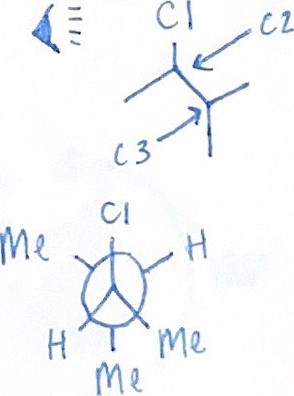 Cl
C2
C3
Cl
Me
H
H
Me
Me